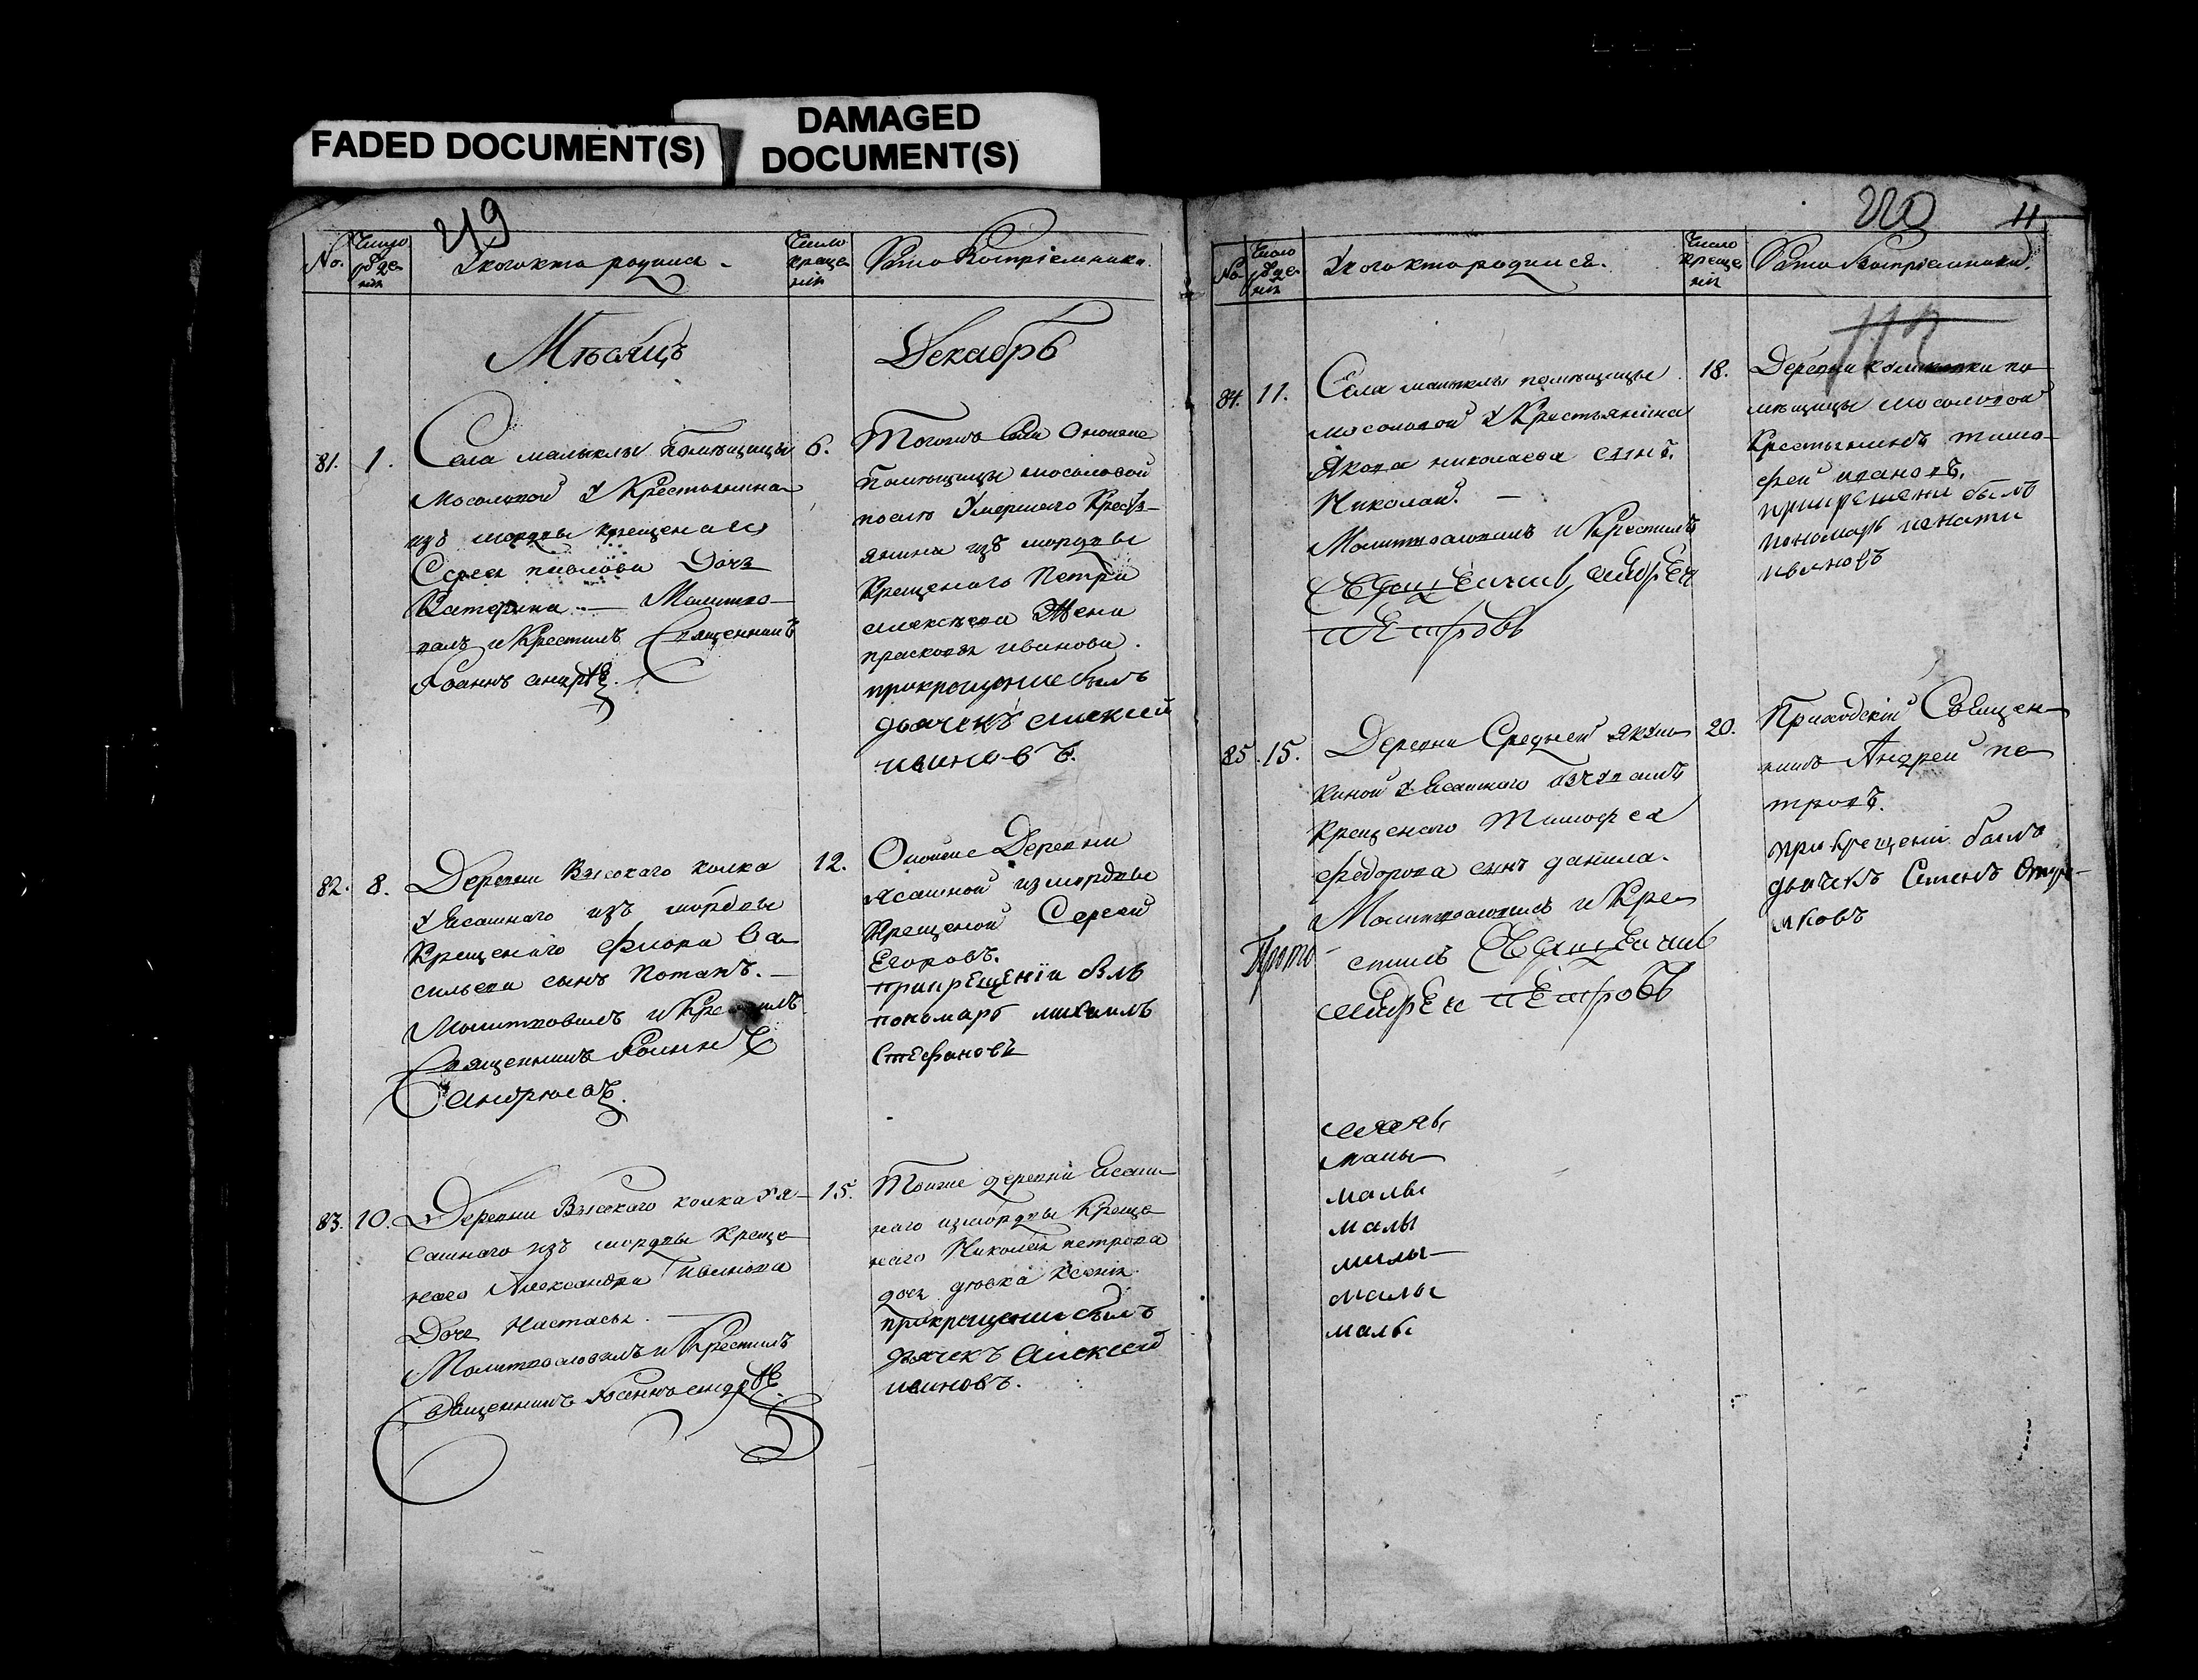 FADED DOCUMENT(S)
DAMAGED
DOCUMENT(S)
219
No.
Число
рожде
нія
У кого кто родился
Число
креще
нія
Кто Воспріемники.
Мѣсяцъ
Декабрь
81. 1.
Села малыклы Помѣщицы
Мосоловой У Крестьянина
изъ мордвы крещенаго
Сергея павлова Дочь
Катерина. — Молитво-
валъ и Крестилъ Священникъ
Іоаннъ андрѣе
6.
Тогожъ села Ононже
Помѣщицы мосоловой
послѣ Умершаго Кресть-
янина изъ мордвы
Крещенаго Петра
алексѣева Жена
прасковья иванова.
прикрещение былъ
дьячекъ алексей
ивановъ.
82. 8.
Деревни Высокаго колка
У Ясашнаго изъ мордвы
Крещенаго Флора Ва-
сильева сынъ Потапъ. —
Молитвовалъ и Крестилъ
Священникъ Іоаннъ
андрѣевъ.
12.
Оной же Деревни
Ясашной изъ мордвы
Крещеной Сергей
Егоровъ.
прикрещении былъ
пономарь михаилъ
Стефановъ
83. 10.
Деревни Высокаго колка У я-
сашнаго изъ мордвы Креще-
наго Александра иванова
Дочь Настасья. —
Молитвословилъ и Крестилъ
Священникъ Іоаннъ андрѣе
15.
Тойже деревни Ясаш-
наго из мордвы Креще-
наго Николая петрова
дочь девка Ксенія.
прикрещении былъ
дьячекъ Алексей
ивановъ.
220
11
No
Число
рожде
нія
У кого кто родился.
Число
Креще
нія
Кто Воспріемники.
84. 11.
Села малыклы помѣщицы
мосоловой У Крестьянина
Якова николаева сынъ
Николай. —
Молитвословилъ и Крестилъ
Священникъ андрей
петровъ
18.
Деревни помѣщицы мосоловой
Крестьянинъ тимо-
фей ивановъ.
прикрещении былъ
пономарь игнати
ивановъ
85. 15.
Деревни Средней якуш-
киной У Ясашного изъ чувашъ
Крещенаго Тимофея
Федорова сынъ данила.
Молитвословилъ и Кре-
стилъ Священникъ
андрей петровъ
20.
Приходскій Священ-
никъ Андрей пе-
тровъ.
при крещеніи былъ
дьячекъ Семенъ
малы
малы
малы
малы
малы
малы